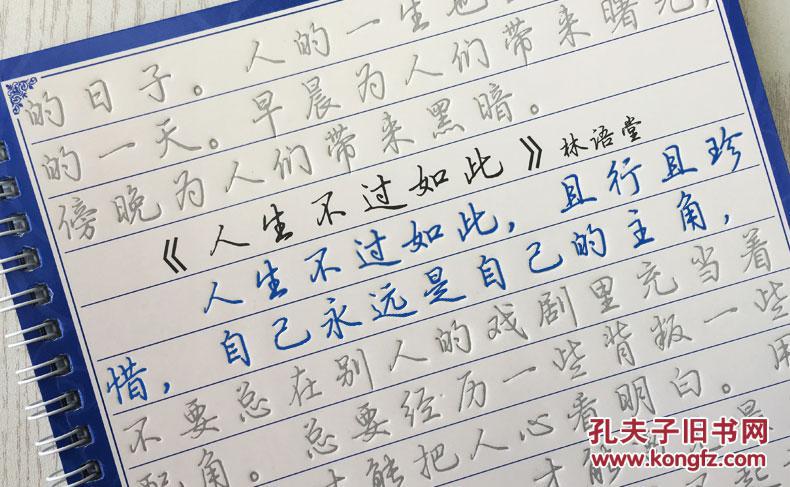 的日子。人的一生也
的一天。早晨为人们带来曙光，
傍晚为人们带来黑暗。
《人生不过如此》林语堂
人生不过如此，且行且珍
惜，自己永远是自己的主角，
不要总在别人的戏剧里充当着
配角。总要经历一些背叛一些
能把人心看明白。用
才能
孔夫子旧书网
www.kongfz.com